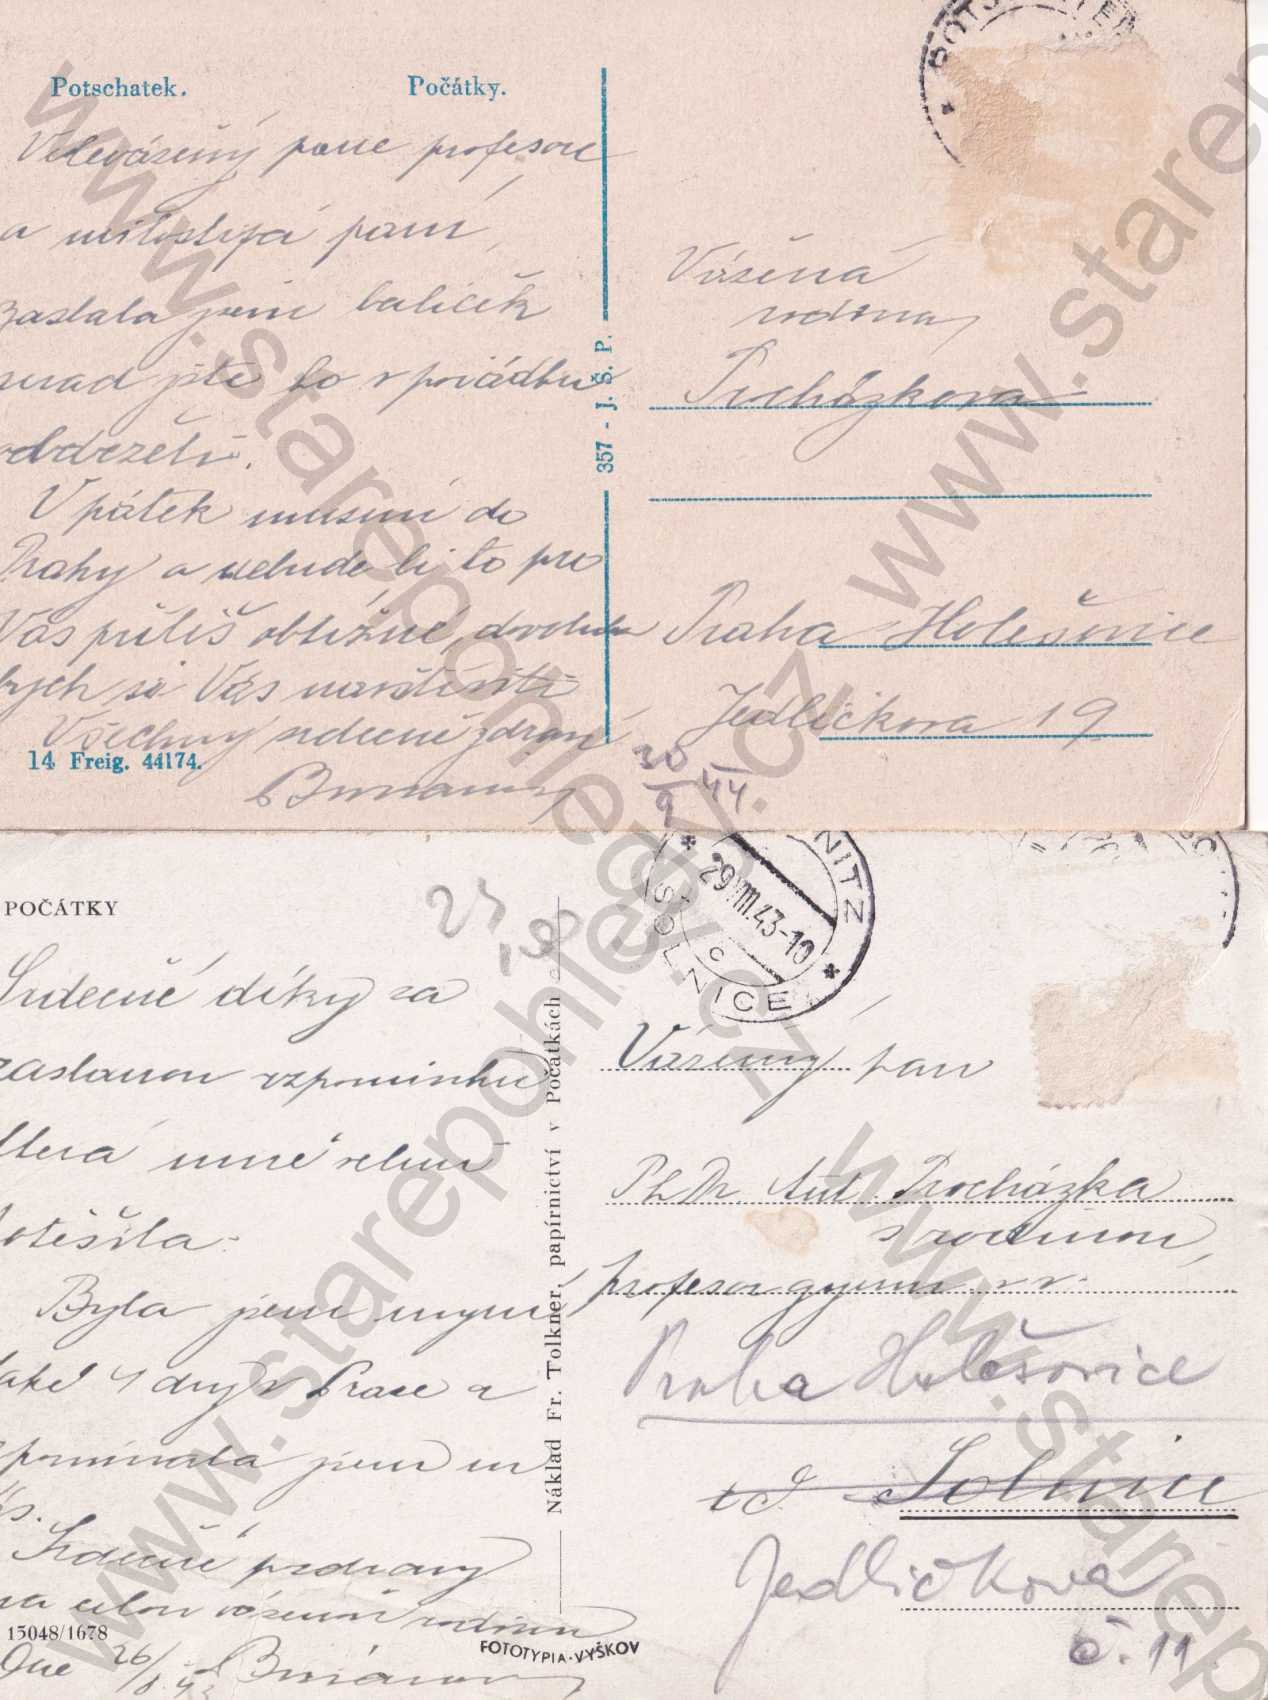 Potschatek. Počátky.
Velevážený pane profesore
a milostivá paní,
Zaslala jsem balíček
snad jste to v pořádku
obdrželi.
V pátek musím do
Prahy a nebude li to pro
Vás příliš obtížné, dovolila
bych si Vás navštíviti
Všechny srdečně zdraví
14 Freig. 44174.
357 - J. Š. P.
Vážená
rodina
Procházkova
Praha Holešovice
Jedličkova 19
30/9 44.
POČÁTKY
Srdečné díky za
zaslanou vzpomínku
která mne velmi
potěšila.
Byla jsem nyní
také 4 dny v Praze a
vzpomínala jsem na
Vás.
Srdečné pozdravy
na celou váženou rodinu
15048/1678
Dne 26/8. 43
Náklad Fr. Tolkner, papírnictví v Počátkách
FOTOTYPIA-VYŠKOV
NITZ
29.VIII.43-10
c
SOLNICE
Vážený pan
PhDr. Ant. Procházka
s rodinou,
profesor gymn. v. v.
Praha Holešovice
Solnice
Jedličkova
č. 11.
www.starepohledy.cz
www.starepohledy.cz